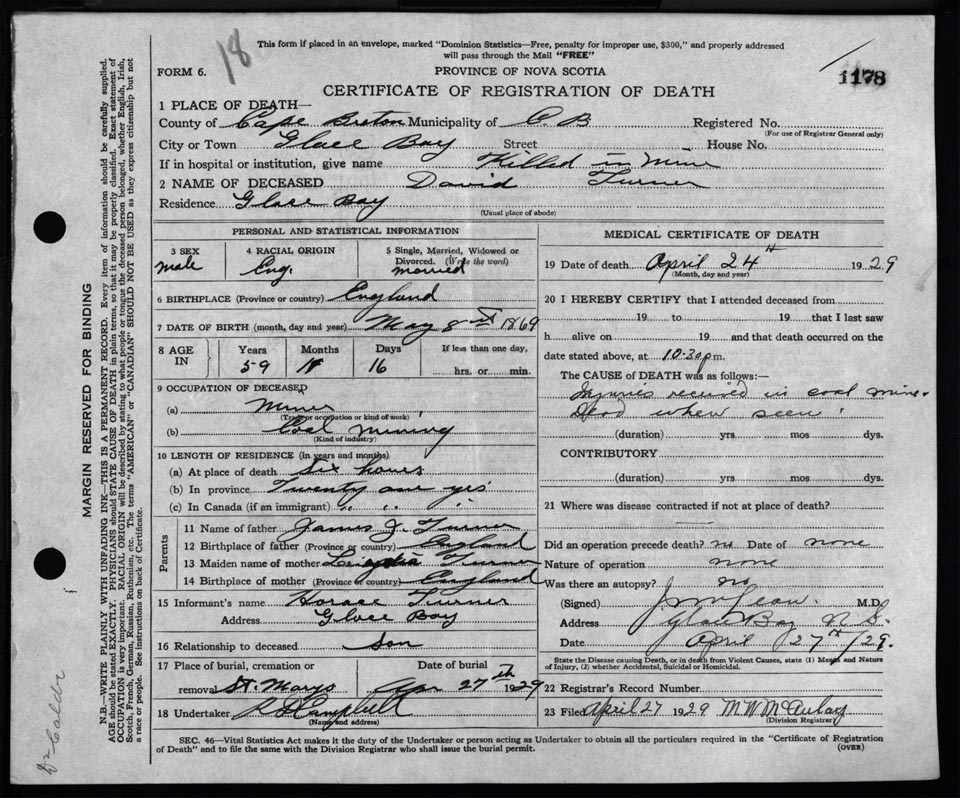 18
This form if placed in an envelope, marked "Dominion Statistics—Free, penalty for improper use, $300," and properly addressed
will pass through the Mail "FREE"
FORM 6.
PROVINCE OF NOVA SCOTIA
1178
CERTIFICATE OF REGISTRATION OF DEATH
1 PLACE OF DEATH—
County of Cape Breton Municipality of C. B Registered No.
(For use of Registrar General only)
City or Town Glace Bay Street House No.
If in hospital or institution, give name Killed in Mine
2 NAME OF DECEASED David Turner
Residence Glace Bay
(Usual place of abode)
PERSONAL AND STATISTICAL INFORMATION
3 SEX male
4 RACIAL ORIGIN Eng.
5 Single, Married, Widowed or Divorced. (Write the word) married
6 BIRTHPLACE (Province or country) England
7 DATE OF BIRTH (month, day and year) May 8 1869
8 AGE IN Years 59 Months 11 Days 16 If less than one day, hrs. or min.
9 OCCUPATION OF DECEASED
(a) Miner
(Trade or occupation or kind of work)
(b) Coal mining
(Kind of industry)
10 LENGTH OF RESIDENCE (in years and months)
(a) At place of death Six hours
(b) In province Twenty one yrs
(c) In Canada (if an immigrant) " " "
Parents
11 Name of father James J. Turner
12 Birthplace of father (Province or country) England
13 Maiden name of mother Turner
14 Birthplace of mother (Province or country) England
15 Informant's name Horace Turner
Address Glace Bay
16 Relationship to deceased Son
17 Place of burial, cremation or removal St. Marys Date of burial Apr 27th 1929
18 Undertaker Campbell
(Name and address)
MEDICAL CERTIFICATE OF DEATH
19 Date of death April 24th 1929
(Month, day and year)
20 I HEREBY CERTIFY that I attended deceased from
19 to 19 that I last saw
h alive on 19 and that death occurred on the
date stated above, at 10.30 p.m.
The CAUSE of DEATH was as follows:—
Injuries received in coal mine.
Dead when seen.
(duration) yrs mos dys.
CONTRIBUTORY
(duration) yrs mos dys.
21 Where was disease contracted if not at place of death?
Did an operation precede death? no Date of none
Nature of operation none
Was there an autopsy? no
(Signed) M.D.
Address Glace Bay N.S.
Date April 27th/29.
State the Disease causing Death, or in death from Violent Causes, state (1) Means and Nature
of Injury, (2) whether Accidental, Suicidal or Homicidal.
22 Registrar's Record Number
23 Filed April 27 1929 M W McAulay
(Division Registrar)
SEC. 46—Vital Statistics Act makes it the duty of the Undertaker or person acting as Undertaker to obtain all the particulars required in the "Certificate of Registration
of Death" and to file the same with the Division Registrar who shall issue the burial permit.
(OVER)
MARGIN RESERVED FOR BINDING
N.B.—WRITE PLAINLY WITH UNFADING INK—THIS IS A PERMANENT RECORD. Every item of information should be carefully supplied.
AGE should be stated EXACTLY. PHYSICIANS should STATE CAUSE OF DEATH in plain terms, so that it may be properly classified. Exact statement of
OCCUPATION is very important. RACIAL ORIGIN will be described by stating to what people or tongue the deceased person belonged, whether English, Irish,
Scotch, French, German, Russian, Ruthenian, etc. The terms "AMERICAN" or "CANADIAN" SHOULD NOT BE USED as they express citizenship but not
a race or people. See instructions on back of Certificate.
Dr Calder